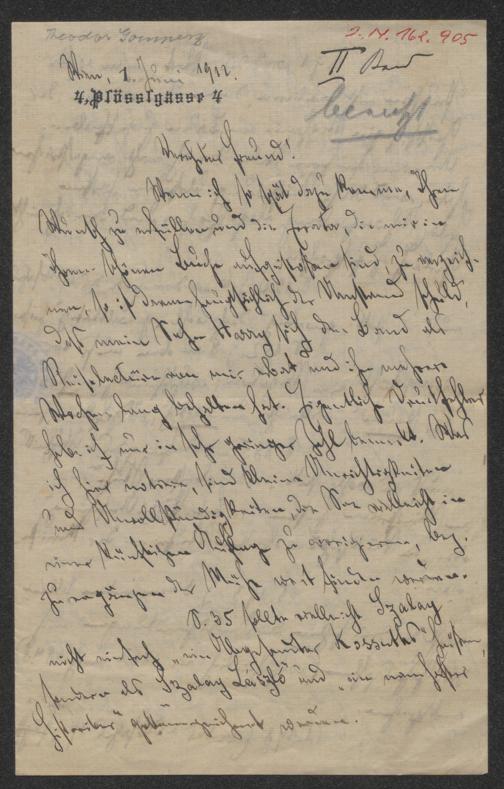 Theodor Gomperz
I. N. 162.905
II Band
benützt
Wien, 1 Juni 1912.
4, Plösslgasse 4
Verehrter Freund!
Wenn ich so spät dazu komme, Ihren
Wunsch zu erfüllen und die Errata, die mir in
Ihrem schönen Buche aufgestoßen sind, zu verzeich-
nen, so ist daran hauptsächlich der Umstand schuld,
daß mein Sohn Harry sich den Band als
Reiselectüre von mir erbat und ihn mehrere
Wochen lang behalten hat. Eigentliche Druckfehler
habe ich nur in sehr geringer Zahl bemerkt. Was
ich hier notiere, sind kleine Unrichtigkeiten
und Unvollständigkeiten, die Sie vielleicht in
einer künftigen Auflage zu corrigieren, bez.
zu ergänzen der Mühe wert finden werden.
S. 35 sollte vielleicht Szalay
nicht einfach „ein Abgesandter Kossuths“ heißen,
sondern als Szalay László und „ein namhafter
Historiker“ gekennzeichnet werden.